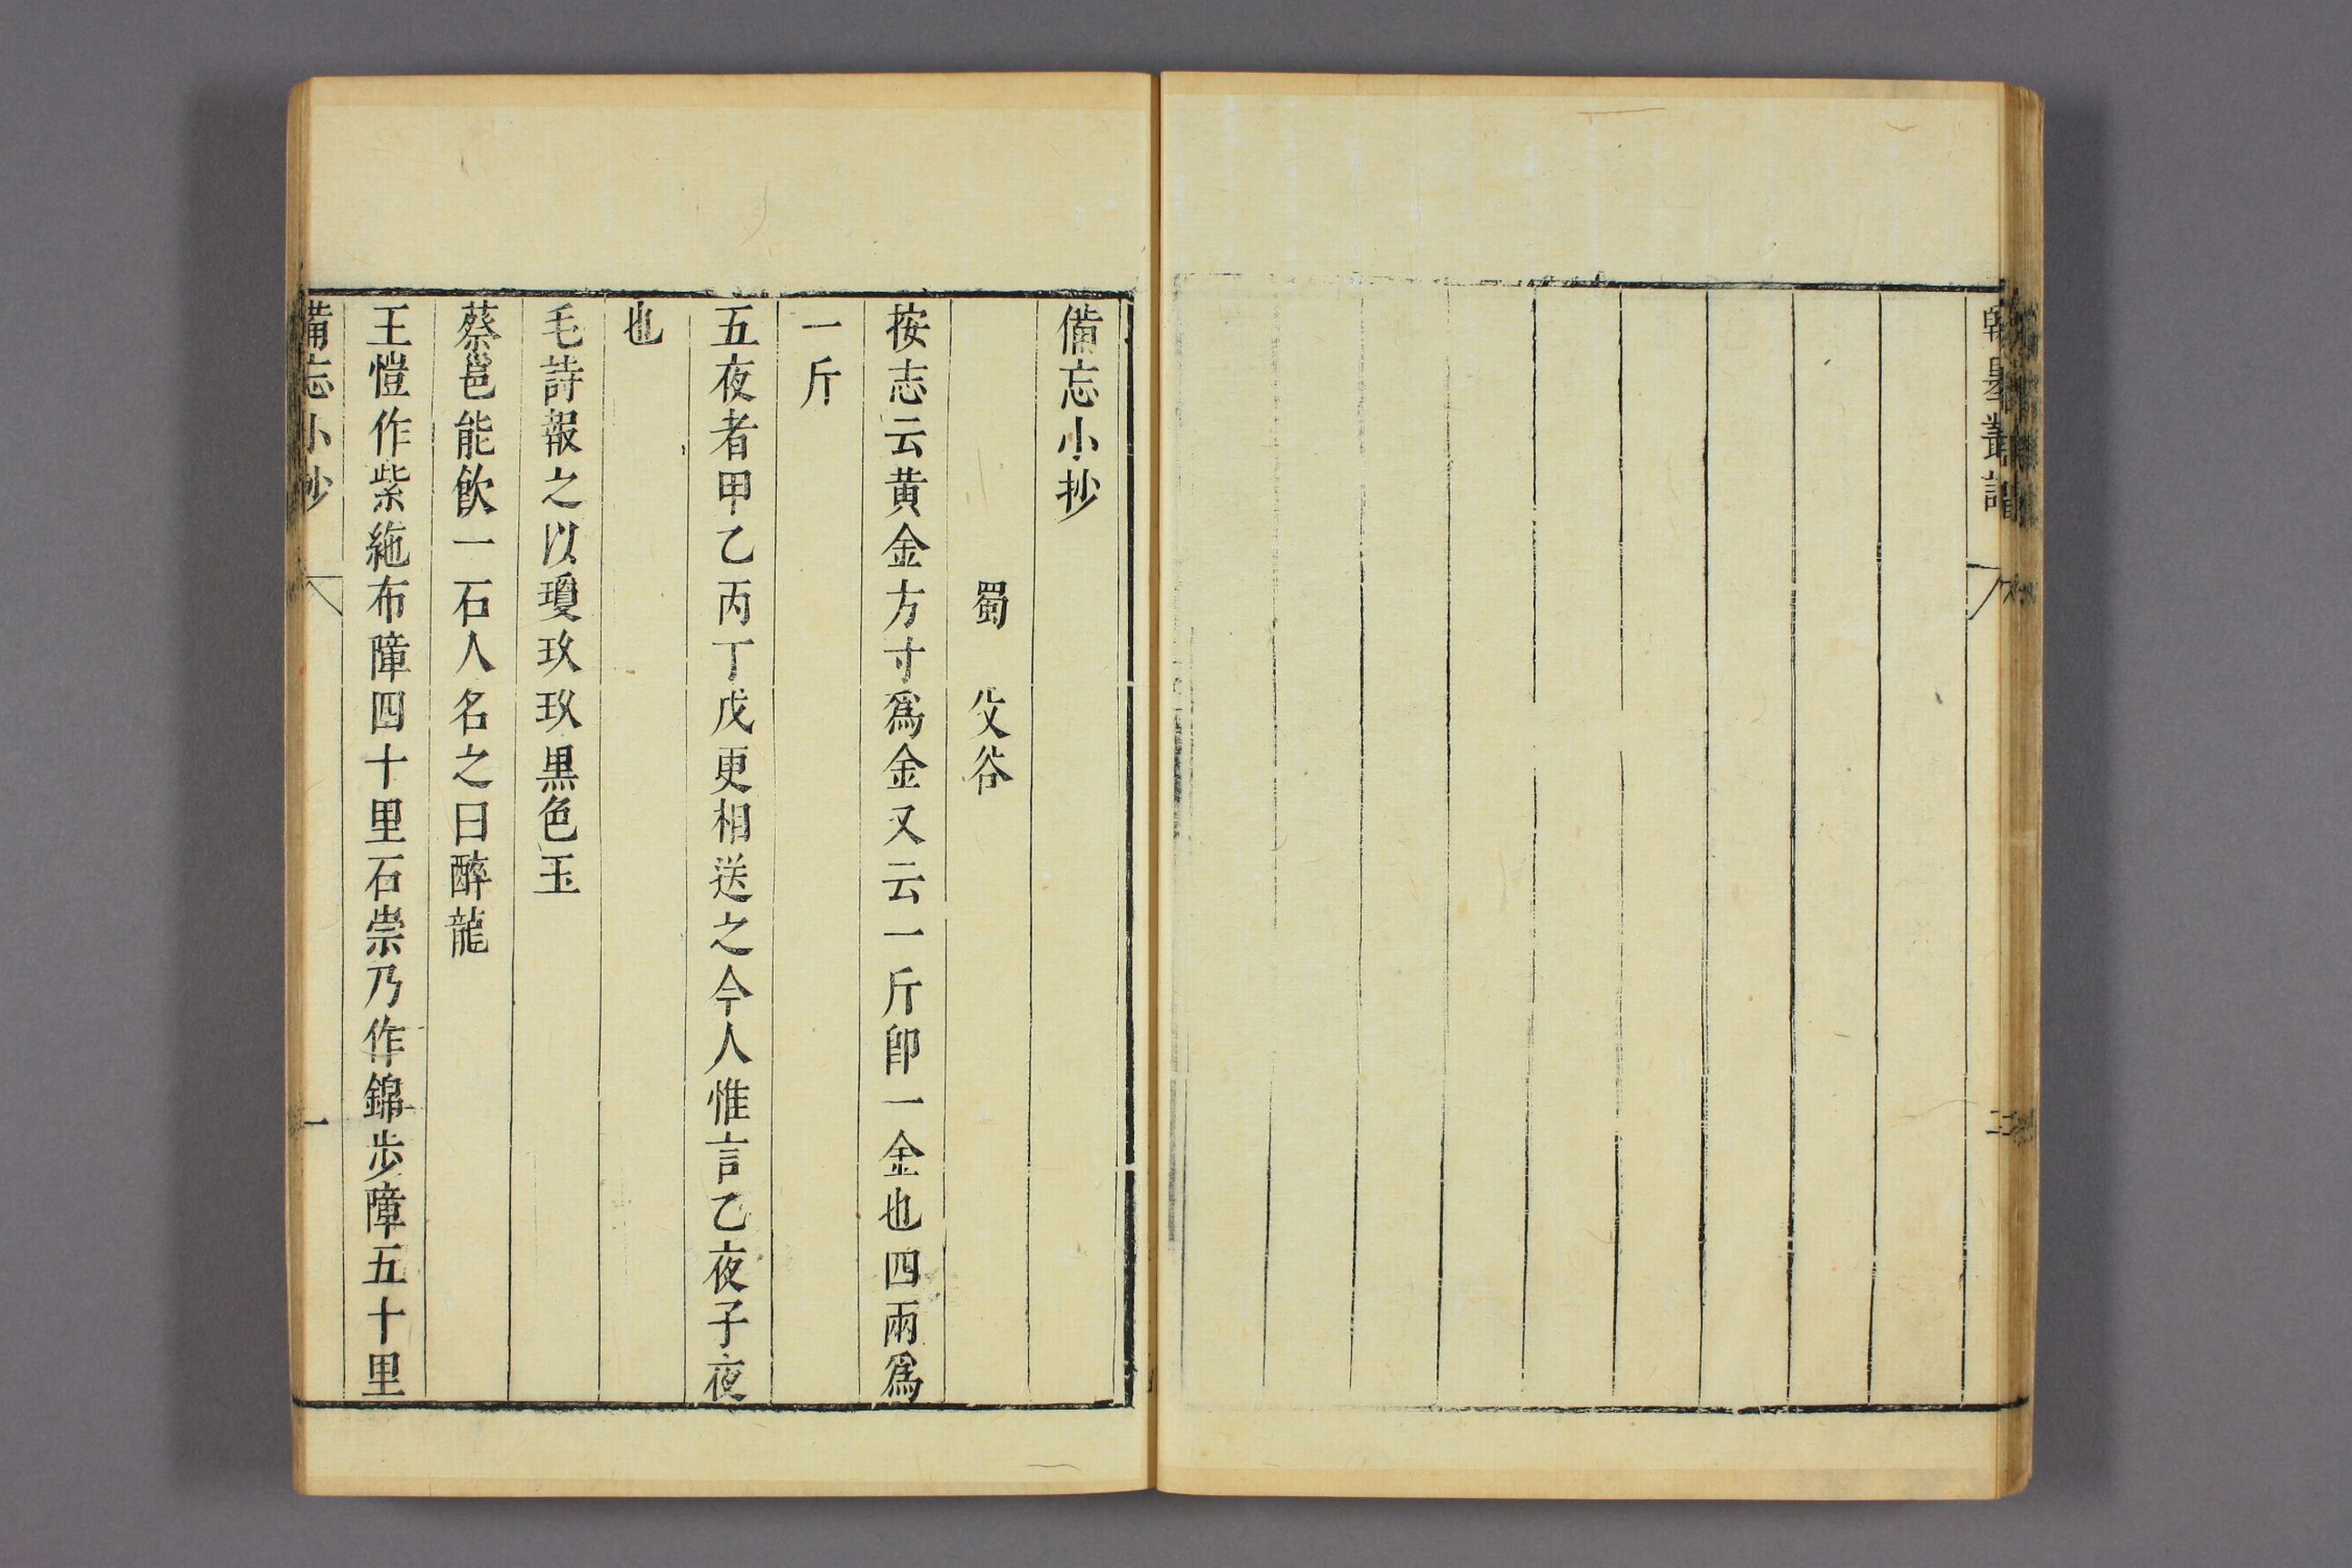 備忘小抄
蜀 文谷
按志云黄金方寸爲金又云一斤卽一金也四兩爲
一斤
五夜者甲乙丙丁戊更相送之今人惟言乙夜子夜
也
毛詩報之以瓊玖玖黒色玉
蔡邕能飲一石人名之曰醉龍
王愷作紫絁布障四十里石崇乃作錦步障五十里
備忘小抄 一